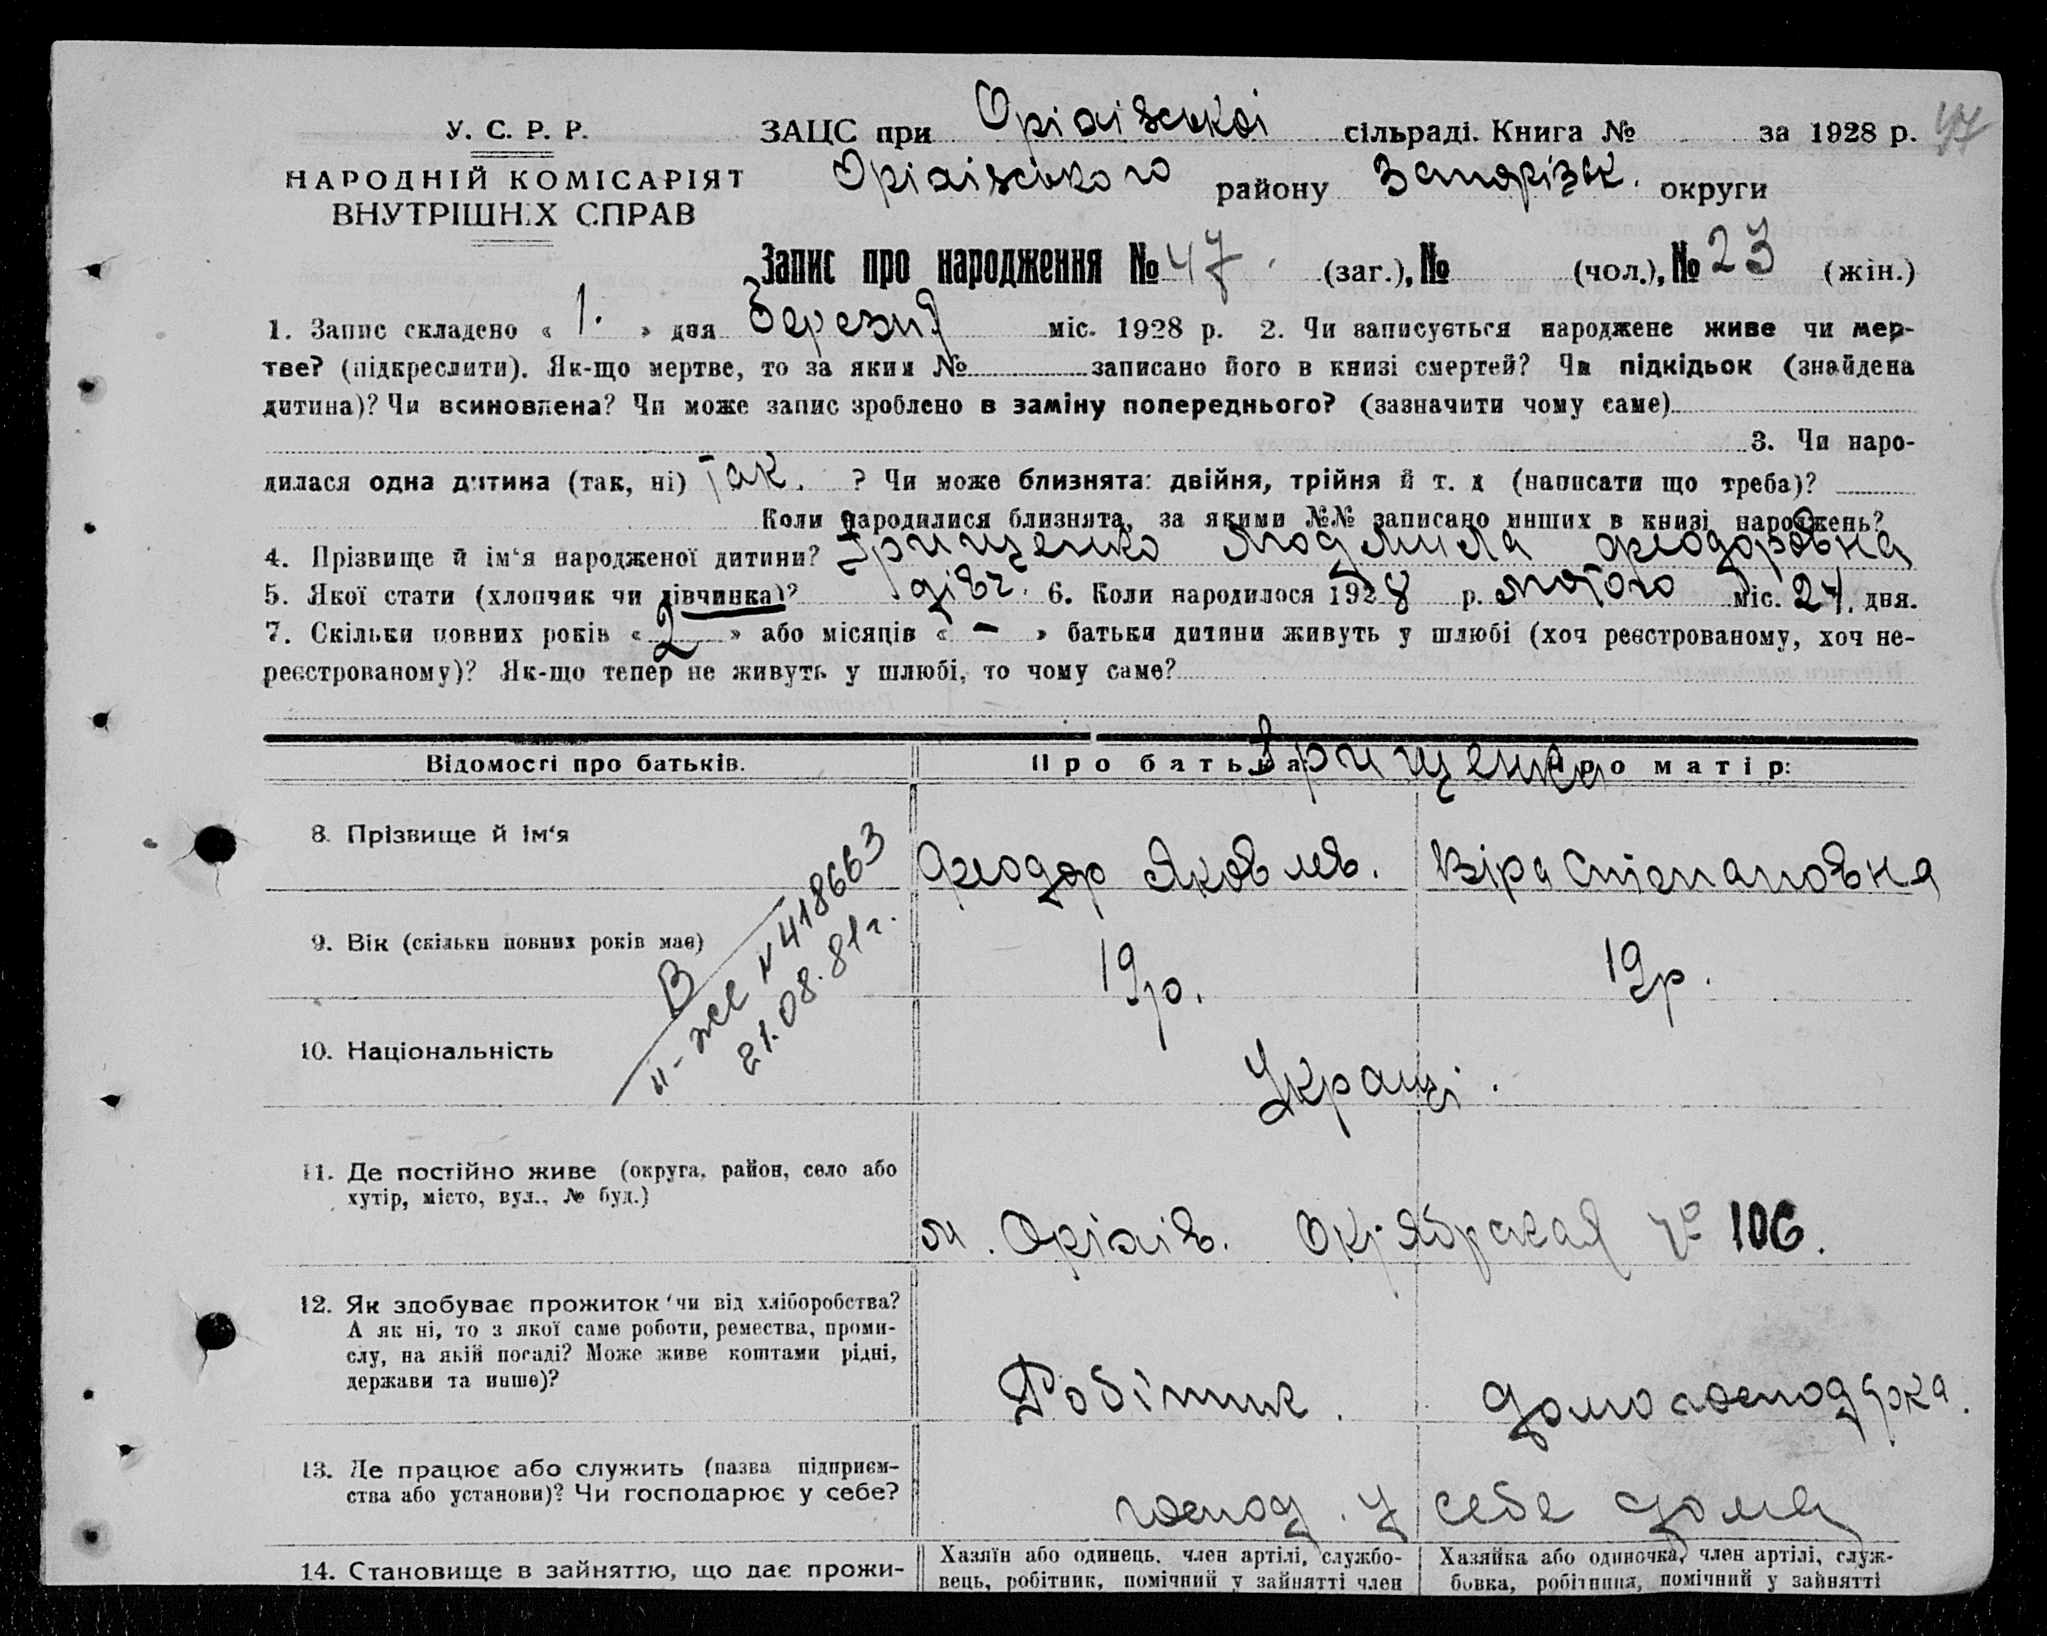 У. С. Р. Р.
НАРОДНІЙ КОМІСАРІЯТ
ВНУТРІШНІХ СПРАВ
ЗАЦС при Оріхівській сільраді. Книга № за 1928 р. 47
Оріхівського району Запоріжськ. округи
Запис про народження № 47. (заг.), № (чол.), № 23 (жін.)
1. Запис складено « 1. » дня березня міс. 1928 р. 2. Чи записується народжене живе чи мер-
тве? (підкреслити). Як-що мертве, то за яким № записано його в книзі смертей? Чи підкідьок (знайдена
дитина)? Чи всиновлена? Чи може запис зроблено в заміну попереднього? (зазначити чому саме)
3. Чи наро-
дилася одна дитина (так, ні) Так. ? Чи може близнята: двійня, трійня й т. д (написати що треба)?
Коли народилися близнята, за якими №№ записано инших в книзі народжень?
4. Прізвище й ім‘я народженої дитини? Грищенко Людмила Феодоровна
5. Якої стати (хлопчик чи дівчинка)? дівч. 6. Коли народилося 1928 р. лютого міс. 24. дня.
7. Скільки повних років « 2 » або місяців « – » батьки дитини живуть у шлюбі (хоч реєстрованому, хоч не-
реєстрованому)? Як-що тепер не живуть у шлюбі, то чому саме?
Відомості про батьків. Про батька Про матір:
Грищенко
8. Прізвище й ім‘я Феодор Яковлев. Віра Стіпановна
9. Вік (скільки повних років має) 19р. 19р.
В
ІІ-ЖС № 418663
21.08.81г.
10. Національність Українці.
11. Де постійно живе (округа, район, село або
хутір, місто, вул., № буд.)
м. Оріхів. Октябрская № 106.
12. Як здобуває прожиток чи від хліборобства?
А як ні, то з якої саме роботи, ремества, проми-
слу, на якій посаді? Може живе коштами рідні,
держави та инше)?
Робітник. домогосподарка.
13. Де працює або служить (назва підприєм-
ства або установи)? Чи господарює у себе?
господ. у себе дома
14. Становище в зайняттю, що дає прожи-
Хазяїн або одинець, член артілі, службо-
вець, робітник, помічний у зайнятті член
Хазяйка або одиночка, член артілі, служ-
бовка, робітниця, помічний у зайнятті